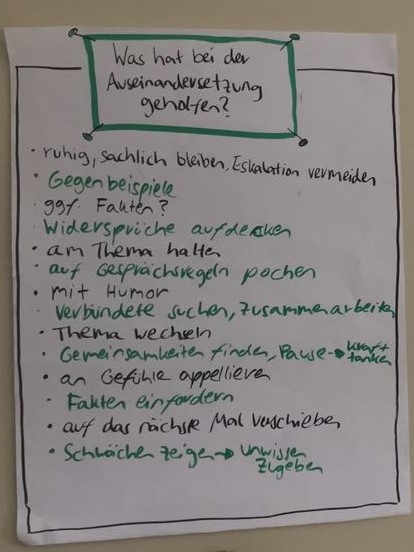 Was hat bei der
Auseinandersetzung
geholfen?
• ruhig, sachlich bleiben, Eskalation vermeiden
• Gegenbeispiele
• ggf. Fakten?
• Widersprüche aufdecken
• am Thema halten
• auf Gesprächsregeln pochen
• mit Humor
• Verbündete suchen, zusammenarbeiten
• Thema wechseln
• Gemeinsamkeiten finden, Pause → Kraft
tanken
• an Gefühle appellieren
• Fakten einfordern
• auf das nächste Mal verschieben
• Schwächen zeigen → Unwissen
zugeben